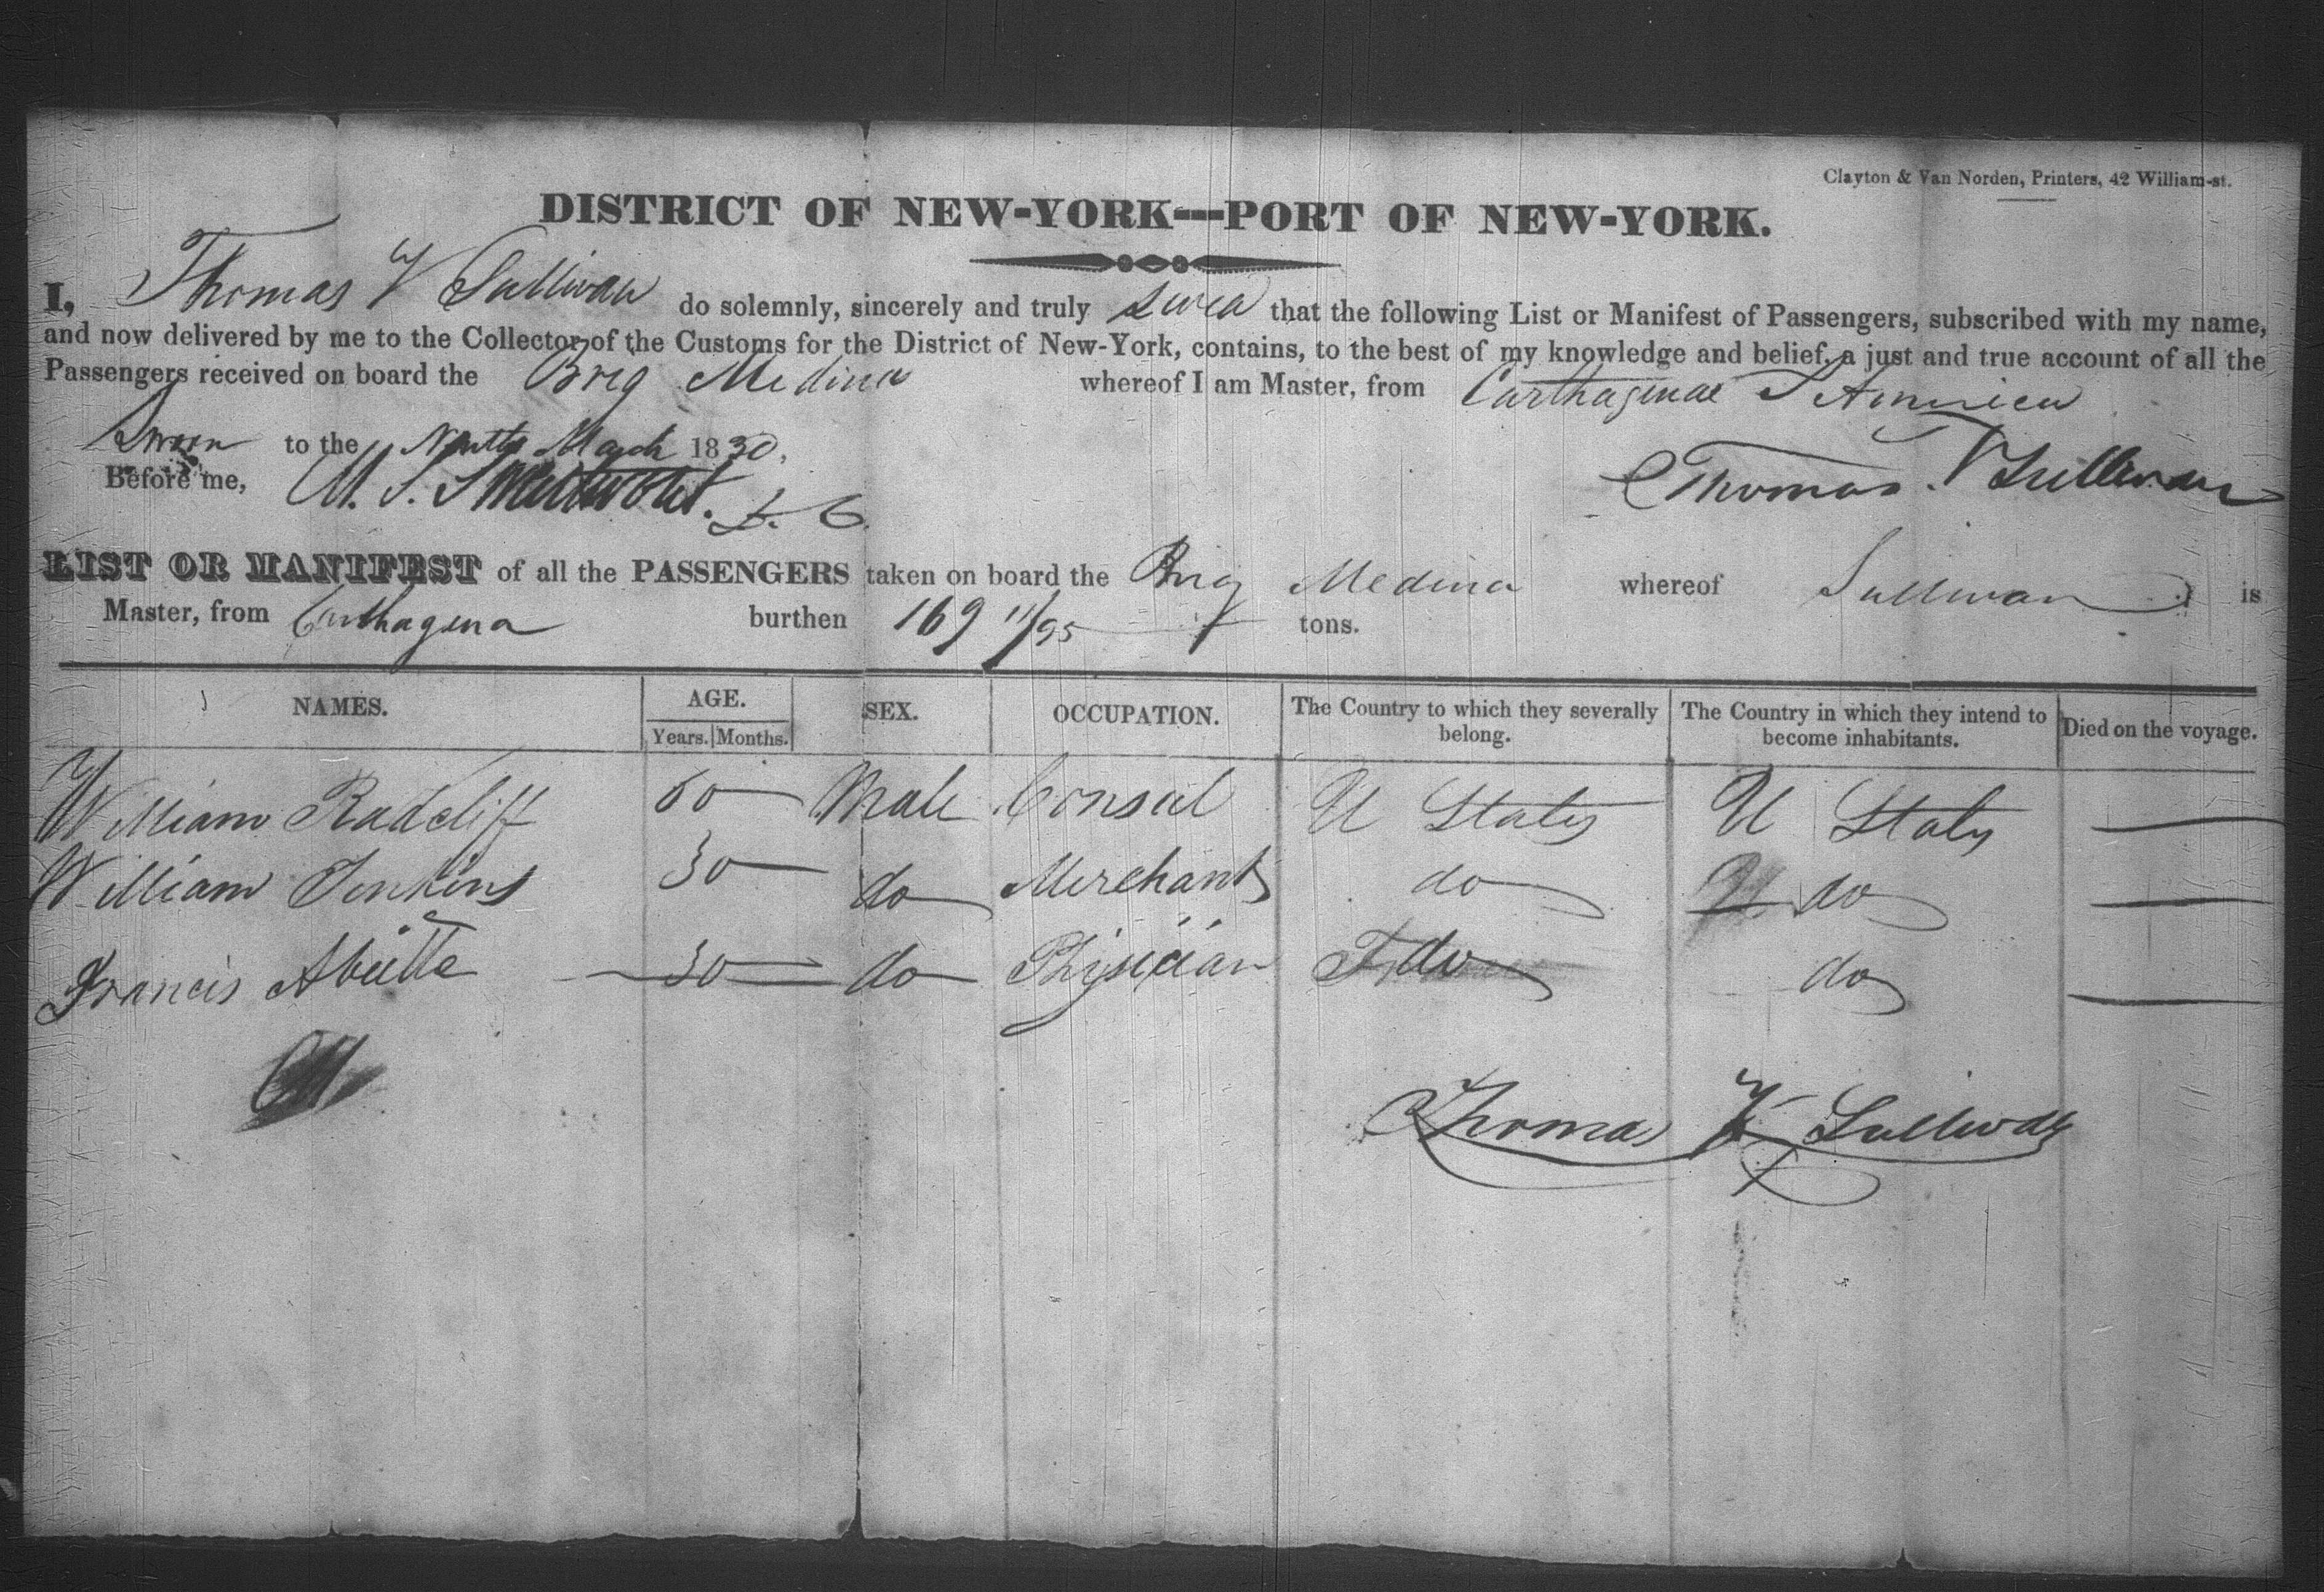 Clayton & Van Norden, Printers, 42 William-st.
DISTRICT OF NEW-YORK---PORT OF NEW-YORK.
I, Thomas V Sullivan do solemnly, sincerely and truly that the following List or Manifest of Passengers, subscribed with my name,
and now delivered by me to the Collector of the Customs for the District of New-York, contains, to the best of my knowledge and belief, a just and true account of all the
Passengers received on board the Brig Medina whereof I am Master, from Carthagenae S America
Sworn to the March 1830,
Thomas V Sullivan
Before me, M. S. Swartwout. D. C.
LIST OR MANIFEST of all the PASSENGERS taken on board the Brig Medina whereof Sullivan is
Master, from Carthagena burthen 169 11/95 tons.
NAMES. AGE. Years. Months. SEX. OCCUPATION. The Country to which they severally belong. The Country in which they intend to become inhabitants. Died on the voyage.
William Radcliff 60 Male Consul U States U States
William Jenkins 30 do Merchant do U do
Francis 30 do Physician do do
Thomas V Sullivan